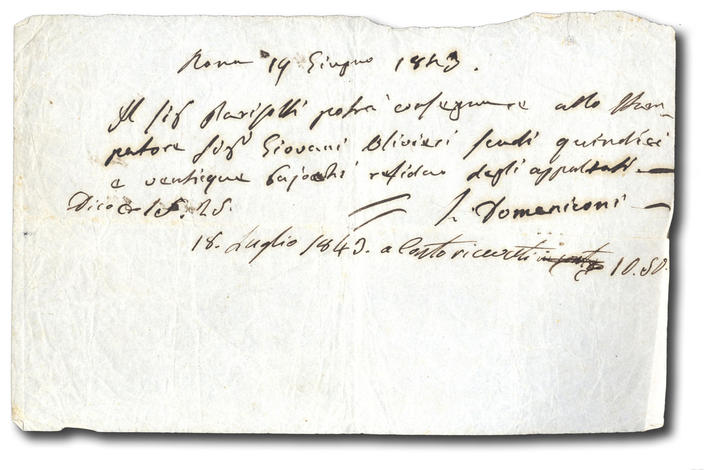 Roma 19 Giugno 1843.
Il Sig Parisotti potrà consegnare allo Stam-
patore Sigr Giovani Olivieri scudi quindici
e venticque bajochi residuo degli appaltati
Dico 15. 25. L. Domeniconi
18. Luglio 1843. a Conto ricevuti 10.50